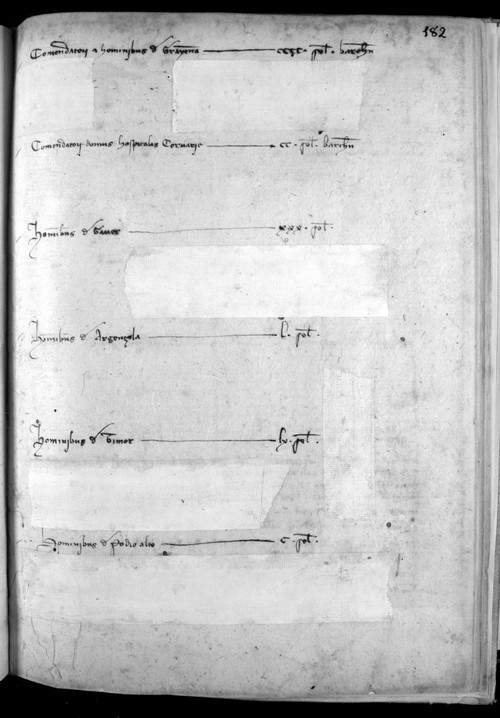 182
Comendatori et hominibus de Grayena cccc. sol. barchn
Comendatori domus hospitalis Cervarie cc. sol. barchn
Hominibus de Gaver xxx. sol.
Hominibus de Argençola l. sol.
Hominibus de Vimer lx. sol.
Hominibus de Podio alto c. sol.